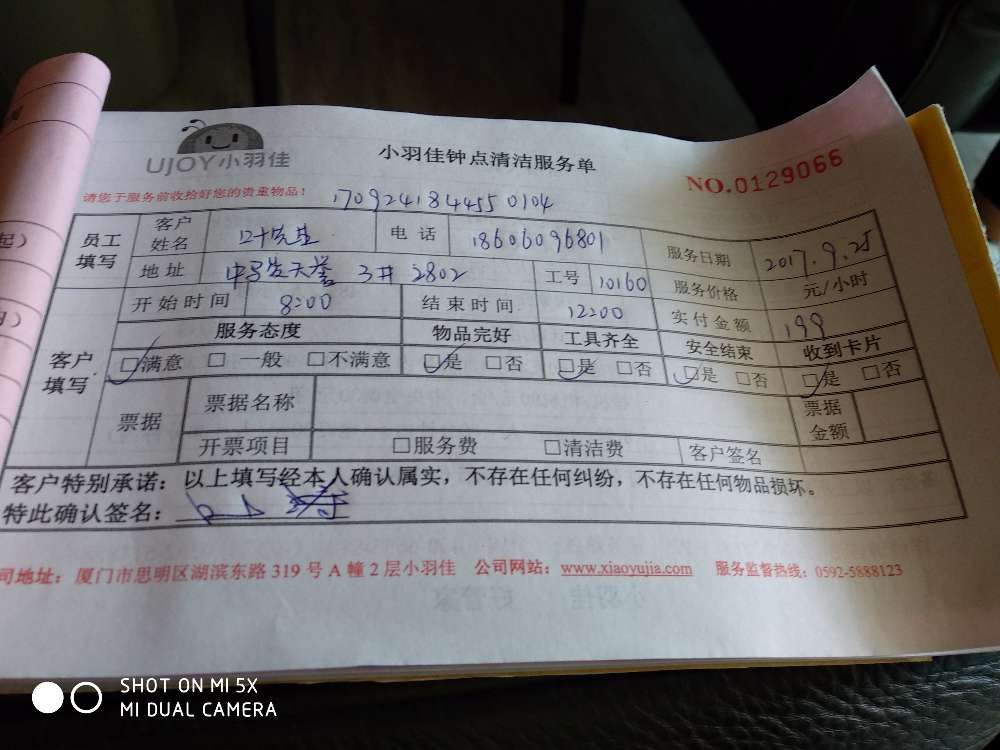 UJOY小羽佳
小羽佳钟点清洁服务单
NO.0129066
请您于服务前收拾好您的贵重物品！
170924184455 0104
员工填写 客户姓名 叶先生 电话 18606096801 服务日期 2017.9.25
地址 3# 2802 工号 10160 服务价格 元/小时
客户填写 开始时间 8:00 结束时间 12:00 实付金额 199
服务态度 物品完好 工具齐全 安全结束 收到卡片
☑满意 □一般 □不满意 ☑是 □否 ☑是 □否 ☑是 □否 ☑是 □否
票据 票据名称 票据金额
开票项目 □服务费 □清洁费 客户签名
客户特别承诺：以上填写经本人确认属实，不存在任何纠纷，不存在任何物品损坏。
特此确认签名：
司地址：厦门市思明区湖滨东路 319 号 A 幢 2 层小羽佳 公司网站：www.xiaoyujia.com 服务监督热线：0592-5888123
SHOT ON MI 5X
MI DUAL CAMERA